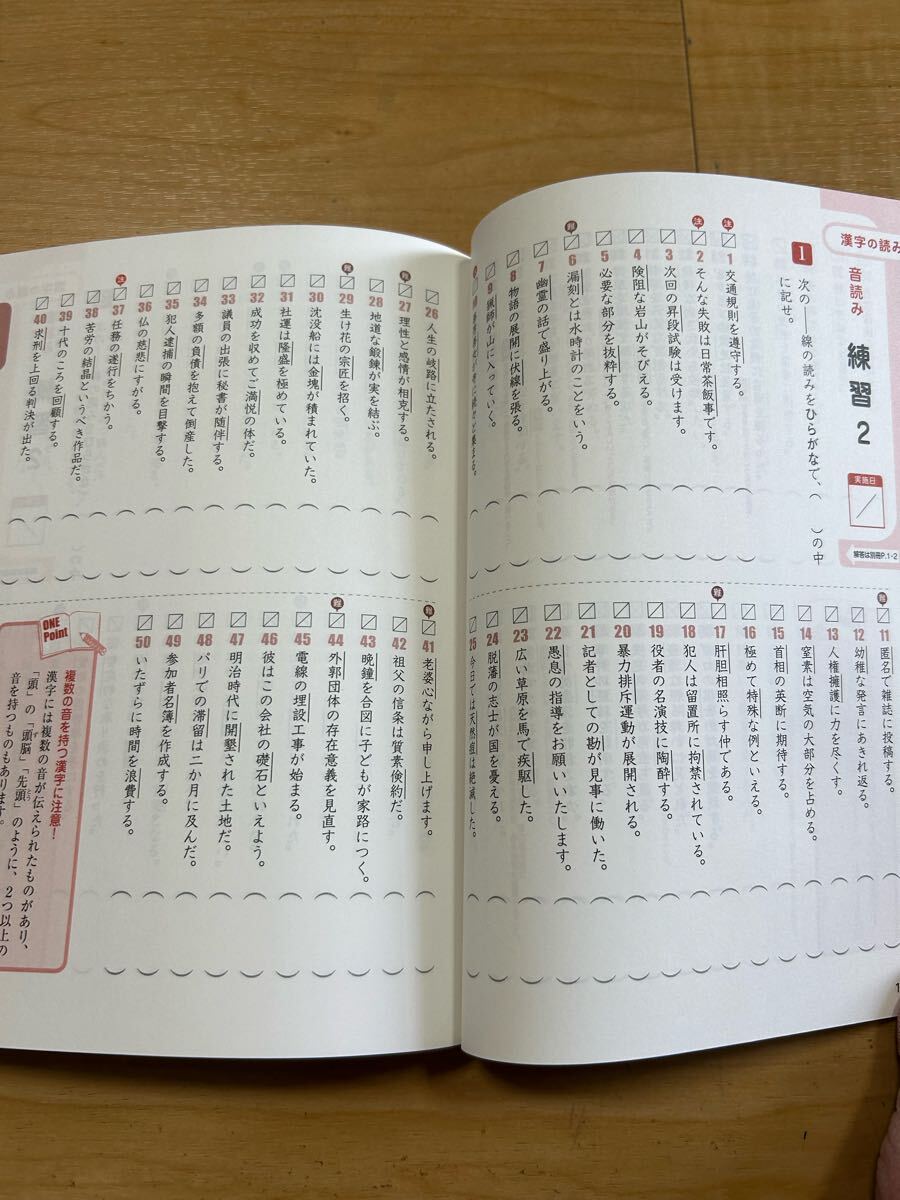 漢字の読み
音読み
練習2
実施日
解答は別冊P.1-2
1
次の――線の読みをひらがなで、( )の中に記せ。
注
1 交通規則を遵守する。
注
2 そんな失敗は日常茶飯事です。
3 次回の昇段試験は受けます。
4 険阻な岩山がそびえる。
5 必要な部分を抜粋する。
難
6 漏刻とは水時計のことをいう。
7 幽霊の話で盛り上がる。
8 物語の展開に伏線を張る。
9 猟師が山に入っていく。
10
難
11 匿名で雑誌に投稿する。
12 幼稚な発言にあきれ返る。
13 人権擁護に力を尽くす。
14 窒素は空気の大部分を占める。
15 首相の英断に期待する。
16 極めて特殊な例といえる。
難
17 肝胆相照らす仲である。
18 犯人は留置所に拘禁されている。
19 役者の名演技に陶酔する。
20 暴力排斥運動が展開される。
21 記者としての勘が見事に働いた。
22 愚息の指導をお願いいたします。
23 広い草原を馬で疾駆した。
24 脱藩の志士が国を憂える。
25 今日では天然痘は絶滅した。
26 人生の岐路に立たされる。
難
27 理性と感情が相克する。
28 地道な鍛錬が実を結ぶ。
難
29 生け花の宗匠を招く。
30 沈没船には金塊が積まれていた。
31 社運は隆盛を極めている。
32 成功を収めてご満悦の体だ。
33 議員の出張に秘書が随伴する。
34 多額の負債を抱えて倒産した。
35 犯人逮捕の瞬間を目撃する。
36 仏の慈悲にすがる。
注
37 任務の遂行をちかう。
38 苦労の結晶というべき作品だ。
39 十代のころを回顧する。
40 求刑を上回る判決が出た。
難
41 老婆心ながら申し上げます。
42 祖父の信条は質素倹約だ。
43 晩鐘を合図に子どもが家路につく。
難
44 外郭団体の存在意義を見直す。
45 電線の埋設工事が始まる。
46 彼はこの会社の礎石といえよう。
47 明治時代に開墾された土地だ。
48 パリでの滞留は二か月に及んだ。
49 参加者名簿を作成する。
50 いたずらに時間を浪費する。
ONE Point
複数の音を持つ漢字に注意!
漢字には複数の音が伝えられたものがあり、
「頭」の「頭脳」「先頭」のように、2つ以上の
音を持つものもあります。